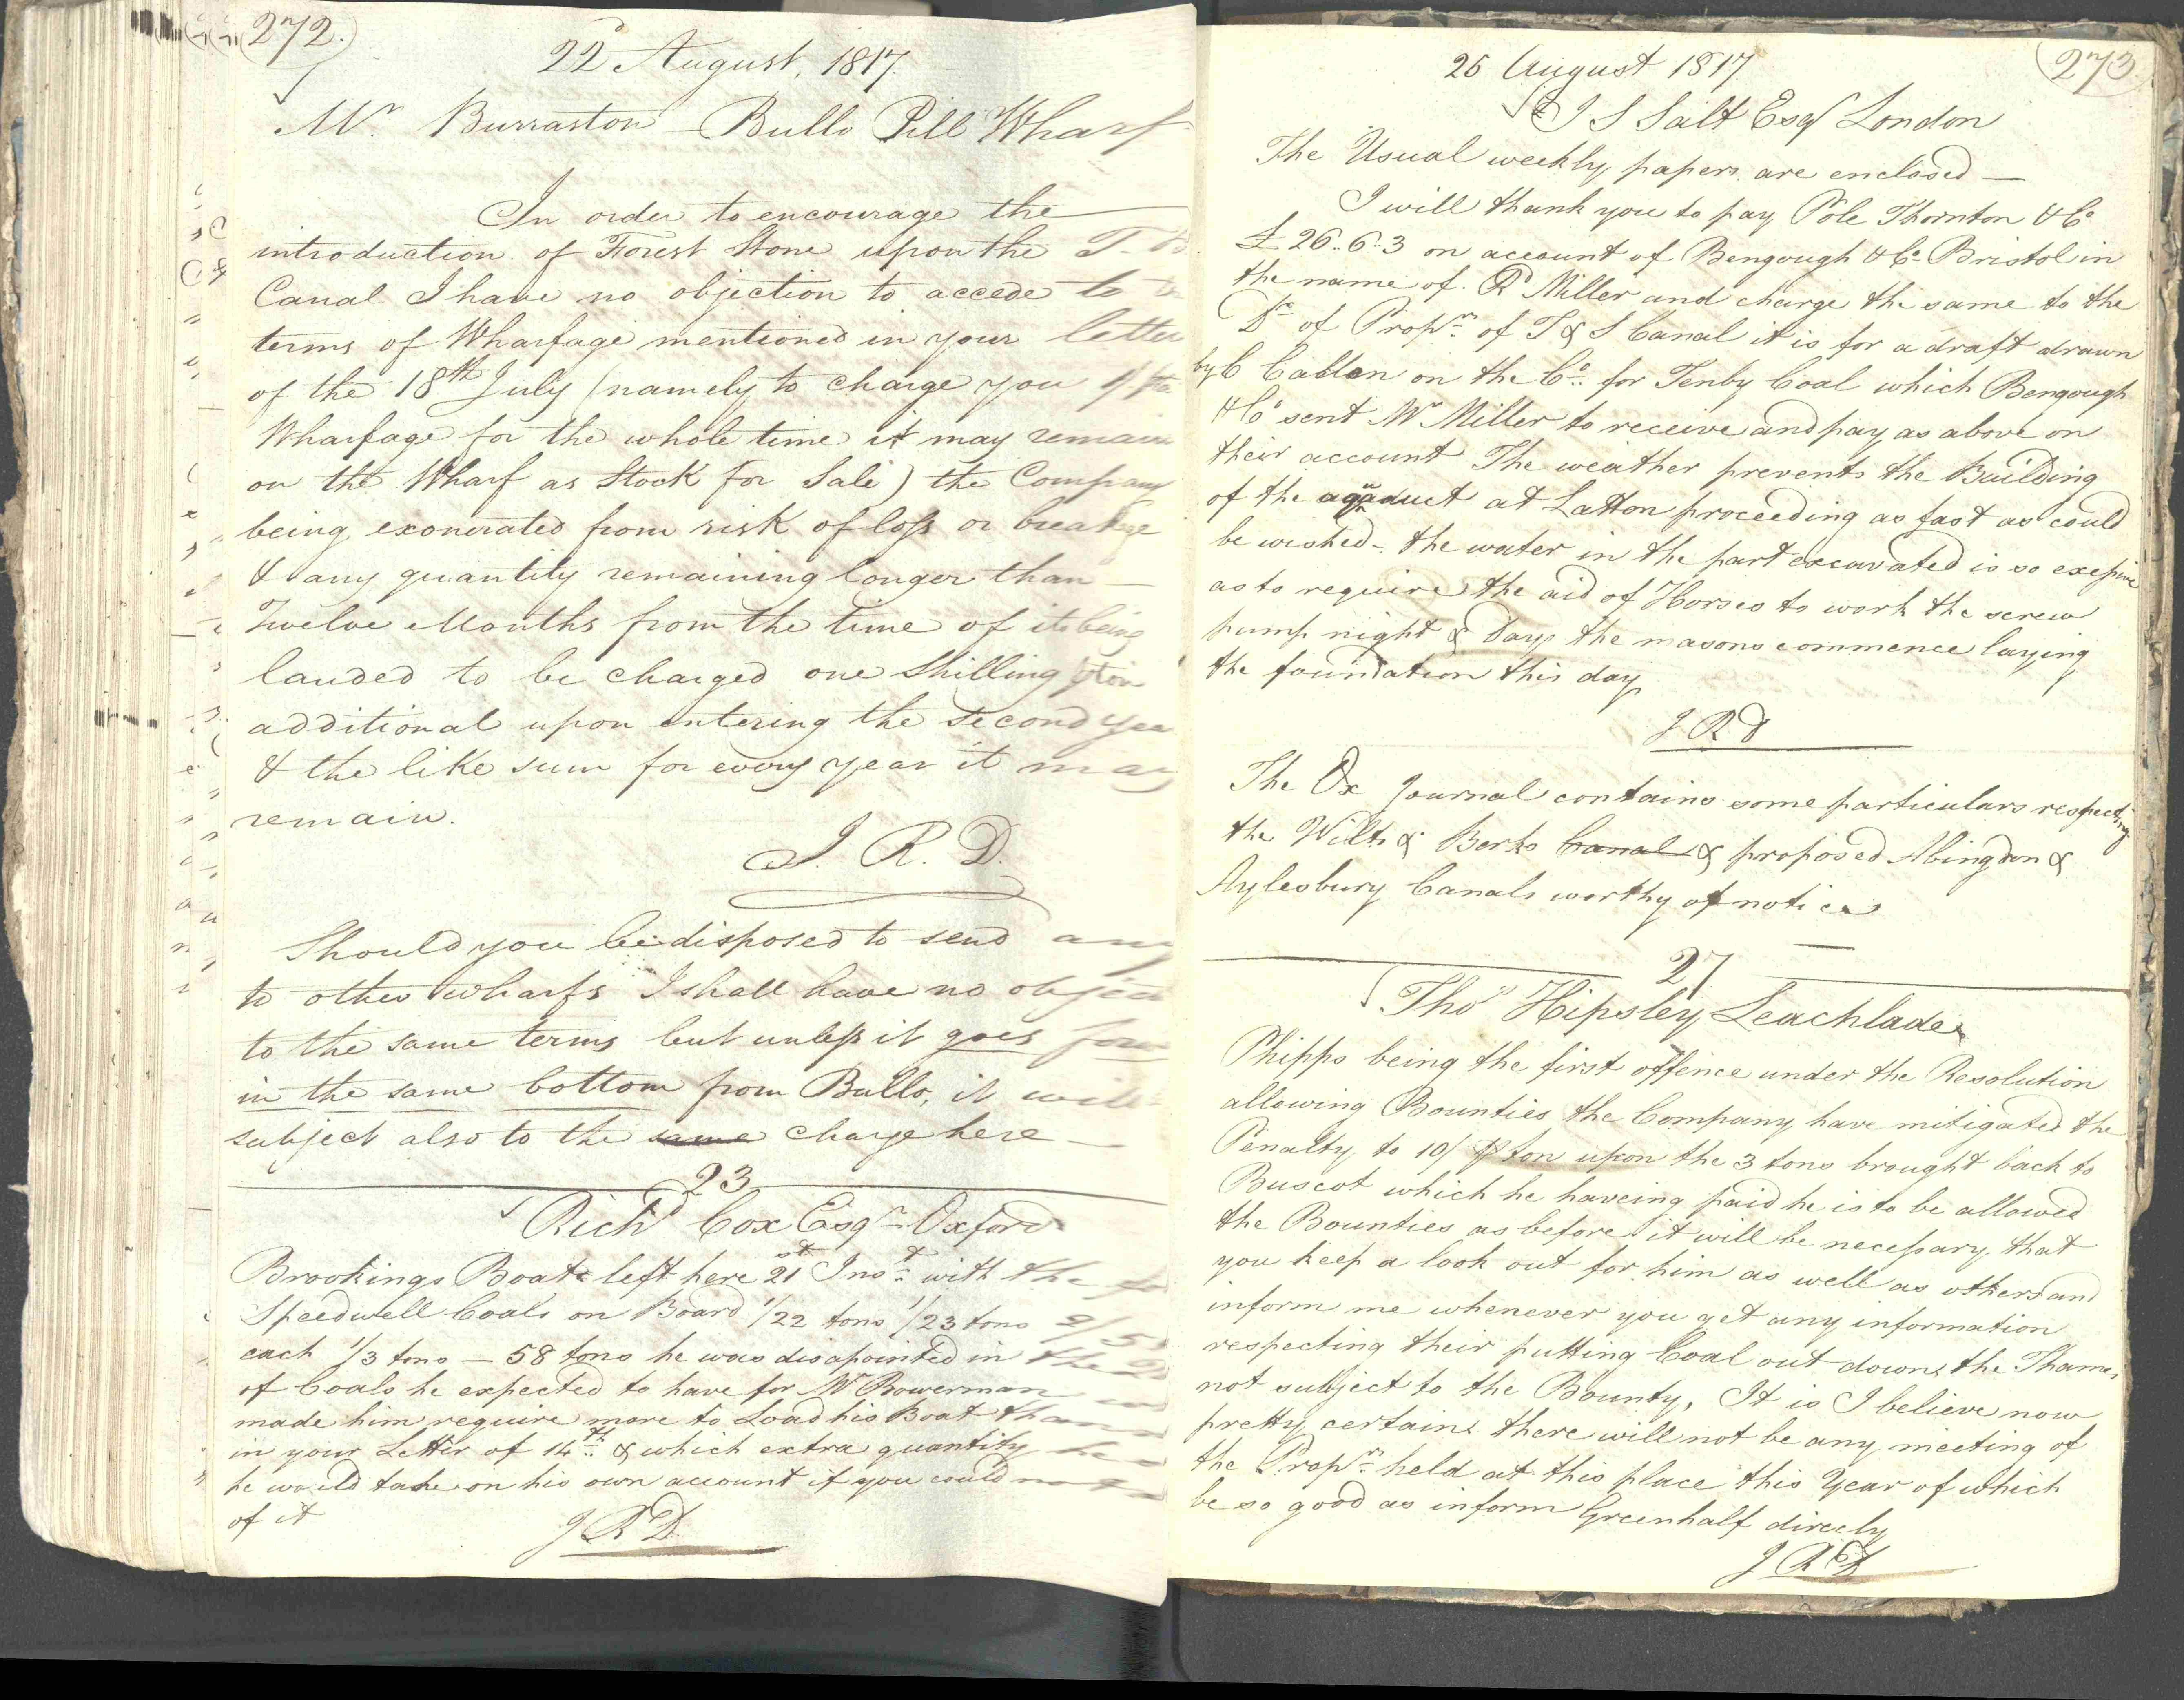 272.
22d August, 1817.
Mr. Burraston - Bullo Pill Wharf
In order to encourage the
introduction of Forest Stone upon the T.
Canal I have no objection to accede to
terms of Wharfage mentioned in your letter
of the 18th July (namely to charge you 1/
Wharfage for the whole time it may remain
on the Wharf as Stock for Sale) the Company
being exonerated from risk of loss or breakage
& any quantity remaining longer than
Twelve Months from the time of its being
landed to be charged one Shilling pton
additional upon entering the second year
& the like sum for every year it may
remain.
J. R. D.
Should you be disposed to send any
to other wharfs I shall have no object
to the same terms but unless it goes
in the same bottom from Bullo, it will
subject also to the same charge here -
23
Richd Cox Esqr Oxford
Brookings Boat left here 21st Inst with the
Speedwell Coals on Board 1/22 tons 1/23 tons 2/5
each 1/3 tons - 58 tons he was disapointed in the
of Coals he expected to have for Mr Bowerman
made him require more to Load his Boat than
in your Letter of 14th & which extra quantity he
he would take on his own account if you could not
of it
J R D
273
25 August 1817
J S Salt Esqr London
The Usual weekly papers are enclosed -
I will thank you to pay Pole Thornton & Co
£26..6..3 on account of Bengough & Co Bristol in
the name of Rd Miller and charge the same to the
Dr of Proprs of T & S Canal it is for a draft drawn
by C Callen on the Co. for Tenby Coal which Bengough
& Co sent Mr Miller to receive and pay as above on
their account The weather prevents the Building
of the aquaduct at Latton proceeding as fast as could
be wished - the water in the part excavated is so exessive
as to require the aid of Horses to work the screw
pump night & Day, the masons commence laying
the foundation this day
J R D
The Ox Journal contains some particulars respecting
the Wilts & Berks Canal & proposed Abingdon &
Aylesbury Canals worthy of notice
27
Thos Hipsley Leachlade
Phipps being the first offence under the Resolution
allowing Bounties the Company have mitigated the
Penalty to 10/ P ton upon the 3 tons brought back to
Buscot which he haveing paid he is to be allowed
the Bounties as before it will be necessary that
you keep a look out for him as well as others and
inform me whenever you get any information
respecting their putting Coal out down the Thames
not subject to the Bounty, It is I believe now
pretty certain there will not be any meeting of
the Proprs held at this place this Year of which
be so good as inform Greenhalf direcly
J R D